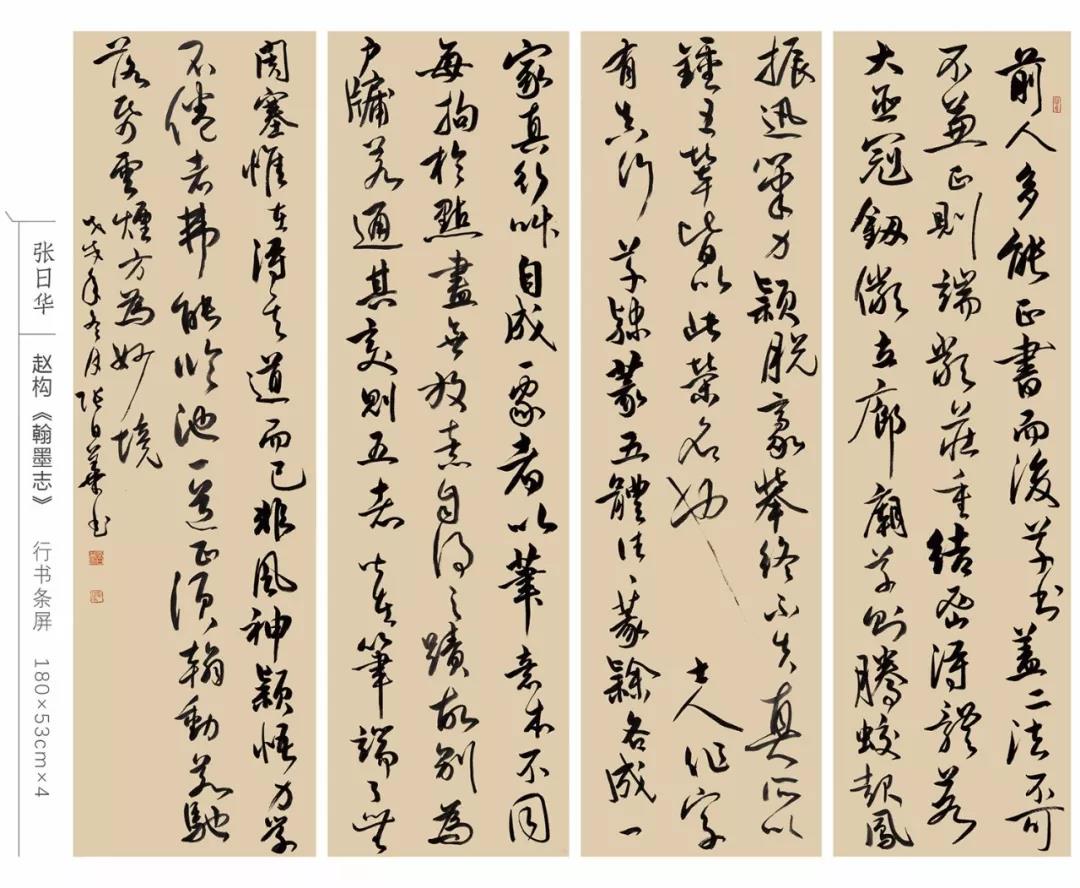 前人多能正書而後草書蓋二法不可
不兼正則端嚴莊重結密得體若
大臣冠劔儼立廊廟草則騰蛟起鳳
振迅筆力穎脱豪舉終不失真所以
鍾王輩皆以此榮名
士人作字
有真行草隸篆五體往往篆隸各成一
家真行草自成一家者以筆意本不同
每拘於點畫無放意自得之蹟故别為
户牖若通其變則五者皆在筆端了無
閡塞惟在得其道而已非風神穎悟力學
不倦者弗能臨池一道正須翰動若馳
落紙雲煙方為妙境
戊戌年冬月張日華書
张日华
赵构《翰墨志》
行书条屏
180×53cm×4